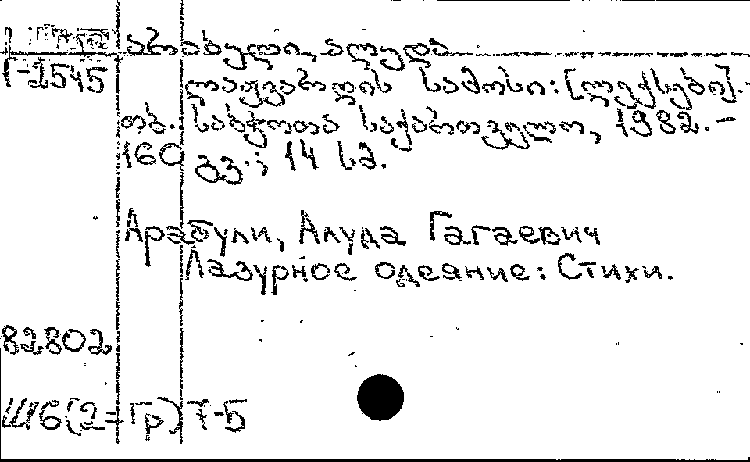 არაბული, ალუდა
Г-1545
ლაჟვარდის სამოსი: [ლექსები].-
თბ.: საბჭოთა საქართველო, 1982.-
160 გვ.; 14 სმ.
Арабули, Алуда Гагаевич
Лазурное одеяние: Стихи.
82802
Ш6(2=Гр)7-5